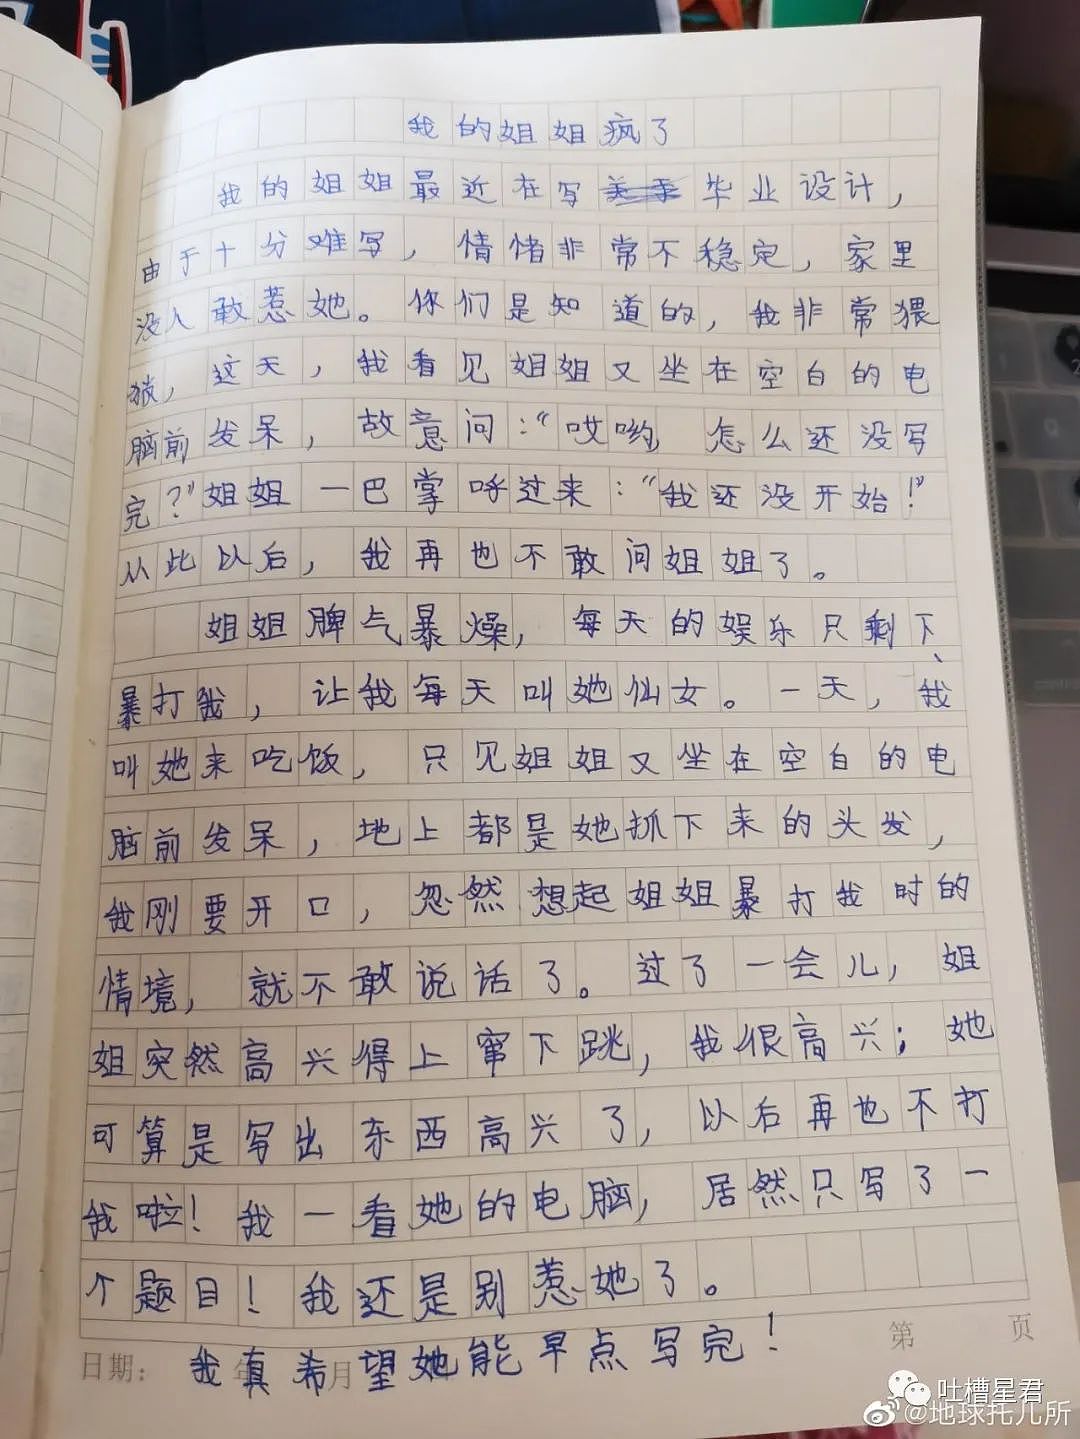 我的姐姐疯了
我的姐姐最近在写毕业设计，
由于十分难写，情绪非常不稳定，家里
没人敢惹她。你们是知道的，我非常猥
猿，这天，我看见姐姐又坐在空白的电
脑前发呆，故意问：“哎哟，怎么还没写
完？”姐姐一巴掌呼过来：“我还没开始！”
从此以后，我再也不敢问姐姐了。
姐姐脾气暴燥，每天的娱乐只剩下、
暴打我，让我每天叫她仙女。一天，我
叫她来吃饭，只见姐姐又坐在空白的电
脑前发呆，地上都是她抓下来的头发，
我刚要开口，忽然想起姐姐暴打我时的
情境，就不敢说话了。过了一会儿，姐
姐突然高兴得上窜下跳，我很高兴；她
可算是写出东西高兴了，以后再也不打
我啦！我一看她的电脑，居然只写了一
个题目！我还是别惹她了。
我真希望她能早点写完！
日期： 年 月
第 页
吐槽星君
@地球托儿所